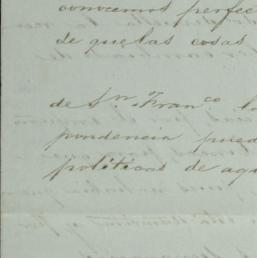 conocemos perfec
de que las cosas
de Sn. Franco la
pondencia pued
politicas de aqu